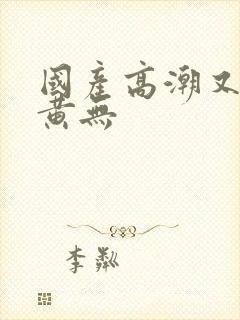 國產高潮又
黃無
李粼